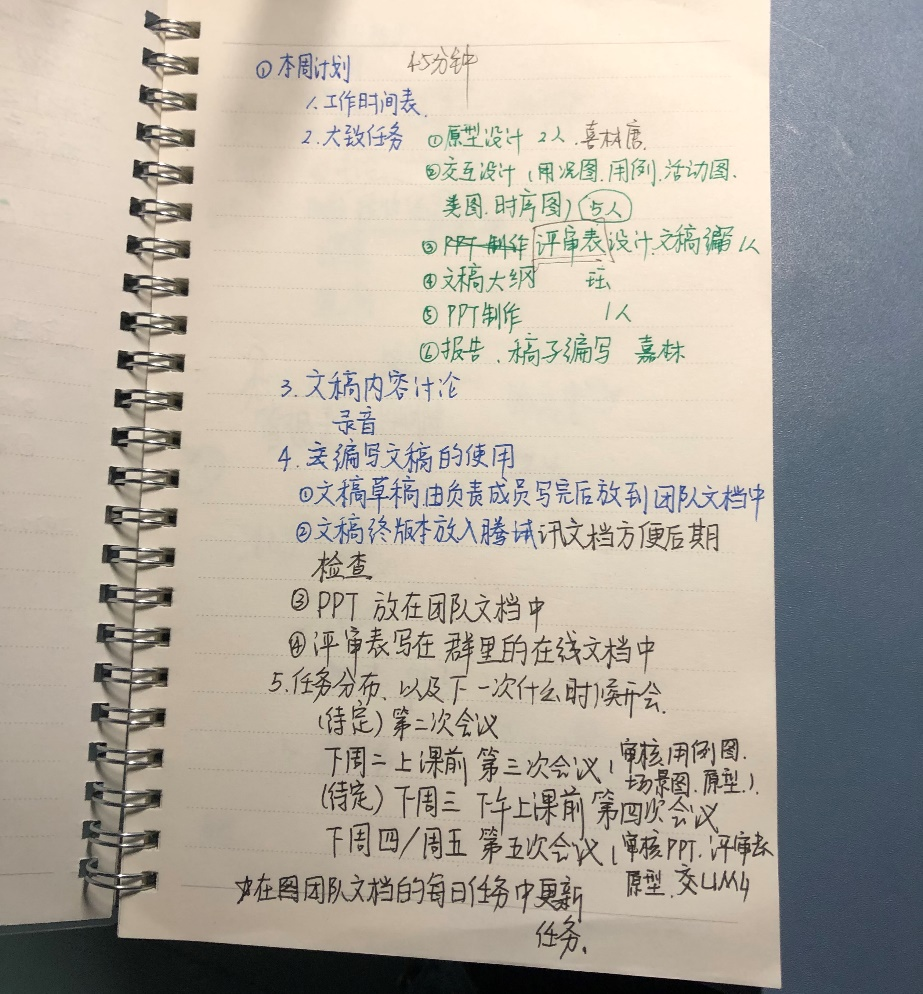 ① 本周计划 45分钟
1. 工作时间表.
2. 大致任务 ①原型设计 2人.喜林唐.
②交互设计(用况图.用例.活动图.
类图.时序图)(5人)
③ PPT制作 评审表设计.文稿编 1人
④文稿大纲 瑶
⑤ PPT制作 1人
⑥报告、稿子编写 嘉林
3. 文稿内容讨论
录音
4. 编写文稿的使用
①文稿草稿由负责成员写完后放到团队文档中
②文稿终版本放入腾讯文档方便后期
检查
③ PPT 放在团队文档中
④ 评审表写在群里的在线文档中
5.任务分布、以及下一次什么时候开会.
(待定)第二次会议
下周二上课前 第三次会议(审核用例图.
场景图.原型.).
(待定)下周三 下午上课前 第四次会议
下周四/周五 第五次会议(审核PPT.评审表
原型.交
在团队文档的每日任务中更新
任务.